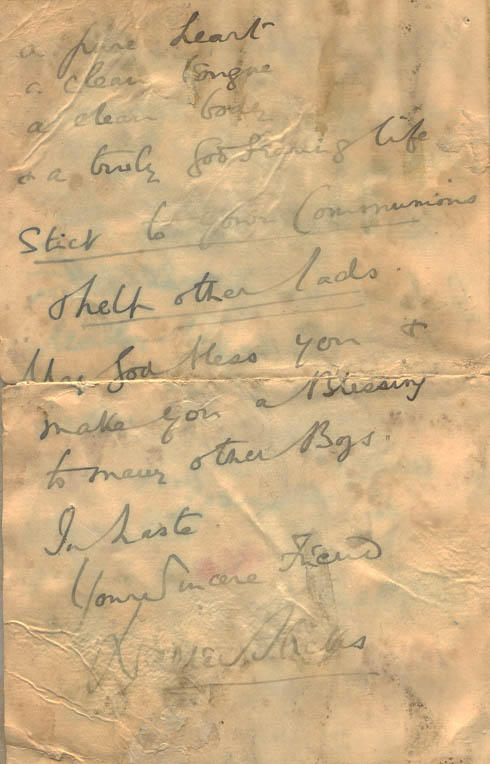 a pure heart
a clean tongue
a clean body
& a truly God fearing life
Stick to your Communions
& help other lads.
May God bless you &
make you a Blessing
to many other Boys.
In haste
Your Sincere Friend